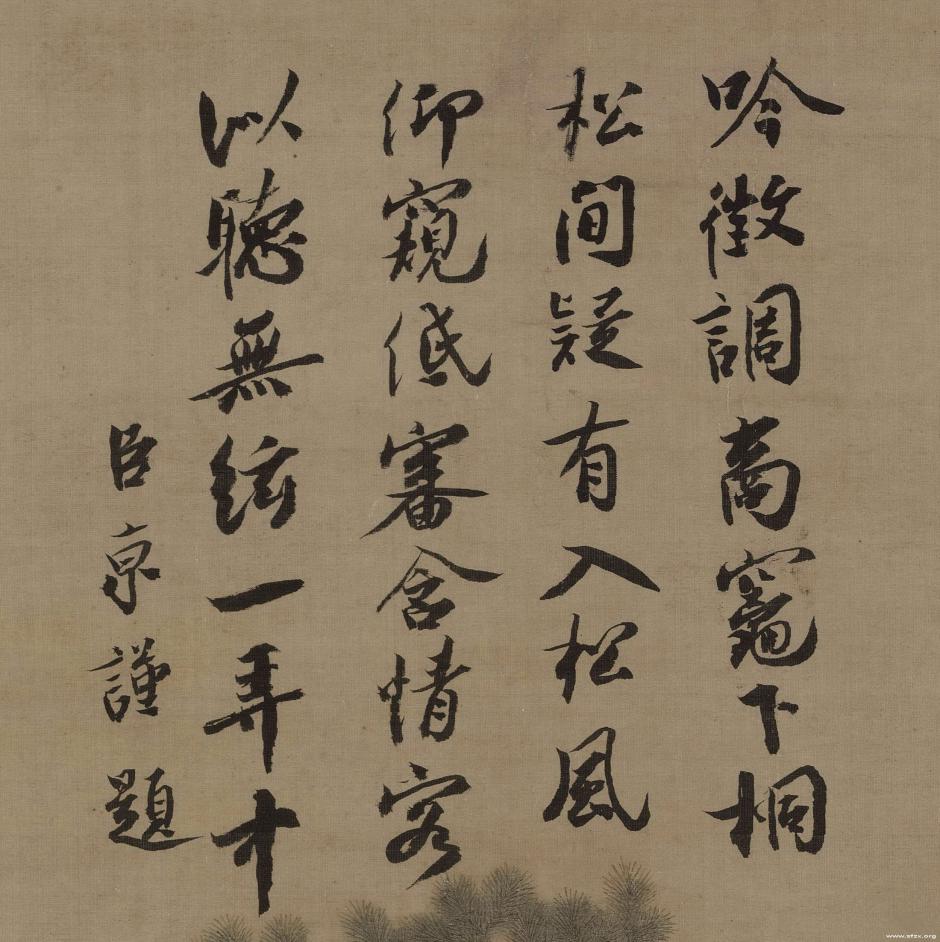 吟徵調商竈下桐
松間疑有入松風
仰窺低審含情客
以聽無絃一弄中
臣京謹題
www.sfzx.org